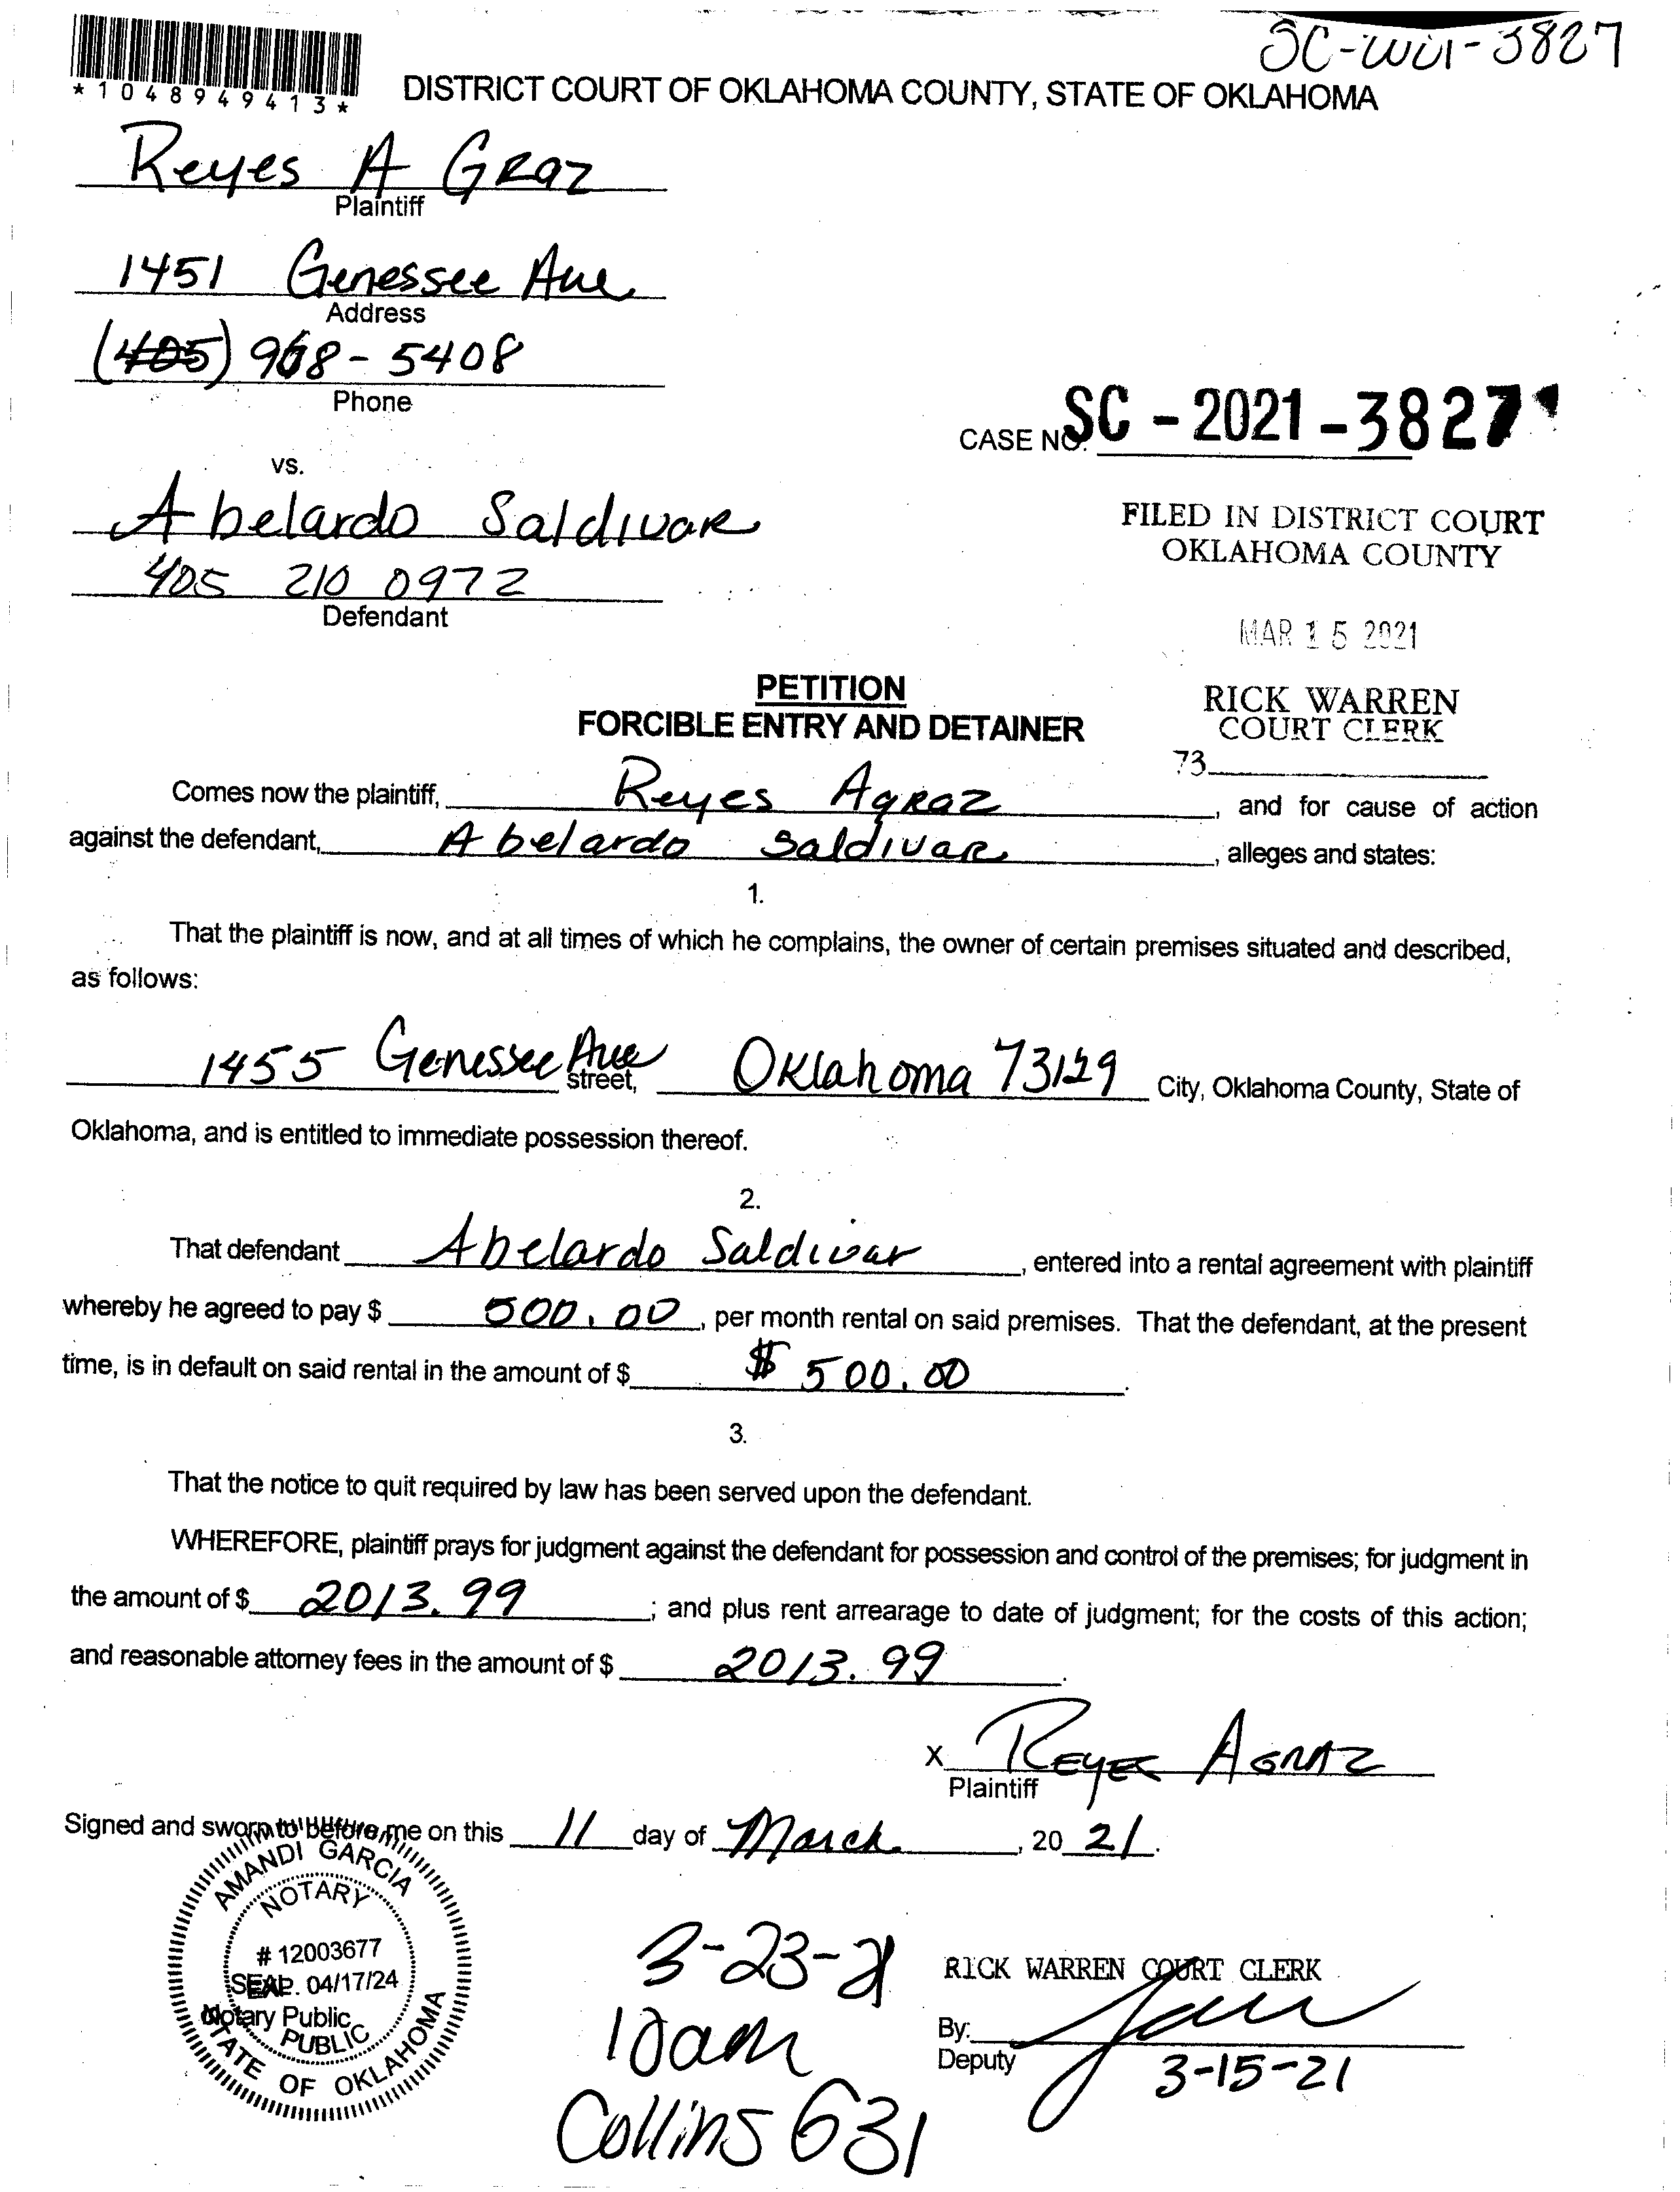 SC-2021-3827
*1048949413*
DISTRICT COURT OF OKLAHOMA COUNTY, STATE OF OKLAHOMA
Reyes A GRaz
Plaintiff
1451 Genessee Ave
Address
(405) 968-5408
Phone
CASE NO. SC-2021-3827
vs.
Abelardo SaldivaR
405 210 0972
Defendant
FILED IN DISTRICT COURT
OKLAHOMA COUNTY
MAR 15 2021
RICK WARREN
COURT CLERK
73
PETITION
FORCIBLE ENTRY AND DETAINER
Comes now the plaintiff, Reyes AgRaz, and for cause of action
against the defendant, Abelardo SaldivaR, alleges and states:
1.
That the plaintiff is now, and at all times of which he complains, the owner of certain premises situated and described,
as follows:
1455 Genessee Ave street, Oklahoma 73129 City, Oklahoma County, State of
Oklahoma, and is entitled to immediate possession thereof.
2.
That defendant Abelardo Saldivar, entered into a rental agreement with plaintiff
whereby he agreed to pay $ 500.00, per month rental on said premises. That the defendant, at the present
time, is in default on said rental in the amount of $ $ 500.00.
3.
That the notice to quit required by law has been served upon the defendant.
WHEREFORE, plaintiff prays for judgment against the defendant for possession and control of the premises; for judgment in
the amount of $ 2013.99; and plus rent arrearage to date of judgment; for the costs of this action;
and reasonable attorney fees in the amount of $ 2013.99.
X REYES AGRAZ
Plaintiff
Signed and sworn to before me on this 11 day of March, 20 21.
AMANDI GARCIA
NOTARY
# 12003677
EXP. 04/17/24
SEAL
Notary Public
PUBLIC
STATE OF OKLAHOMA
3-23-21
10am
Collins 631
RICK WARREN COURT CLERK
By:
Deputy
3-15-21